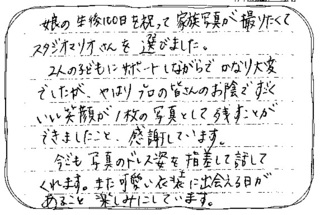 娘の生後100日を祝って家族写真が撮りたくて
スタジオマリオさんを選びました。
2人の子どもにサポートしながらでかなり大変
でしたが、やはりプロの皆さんのお陰ですごく
いい笑顔が1枚の写真として残すことが
できましたこと、感謝しています。
今でも写真のドレス姿を指差して話して
くれます。また可愛い衣装に出会える日が
あること楽しみにしています。